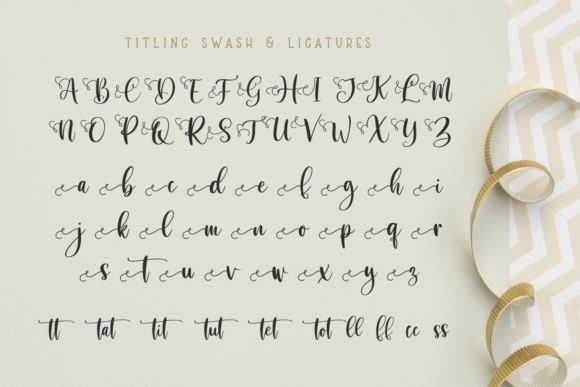 TITLING SWASH & LIGATURES
A B C D E F G H I J K L M
N O P Q R S T U V W X Y Z
a b c d e f g h i
j k l m n o p q r
s t u v w x y z
tt tat tit tut tet tot ll ff cc ss